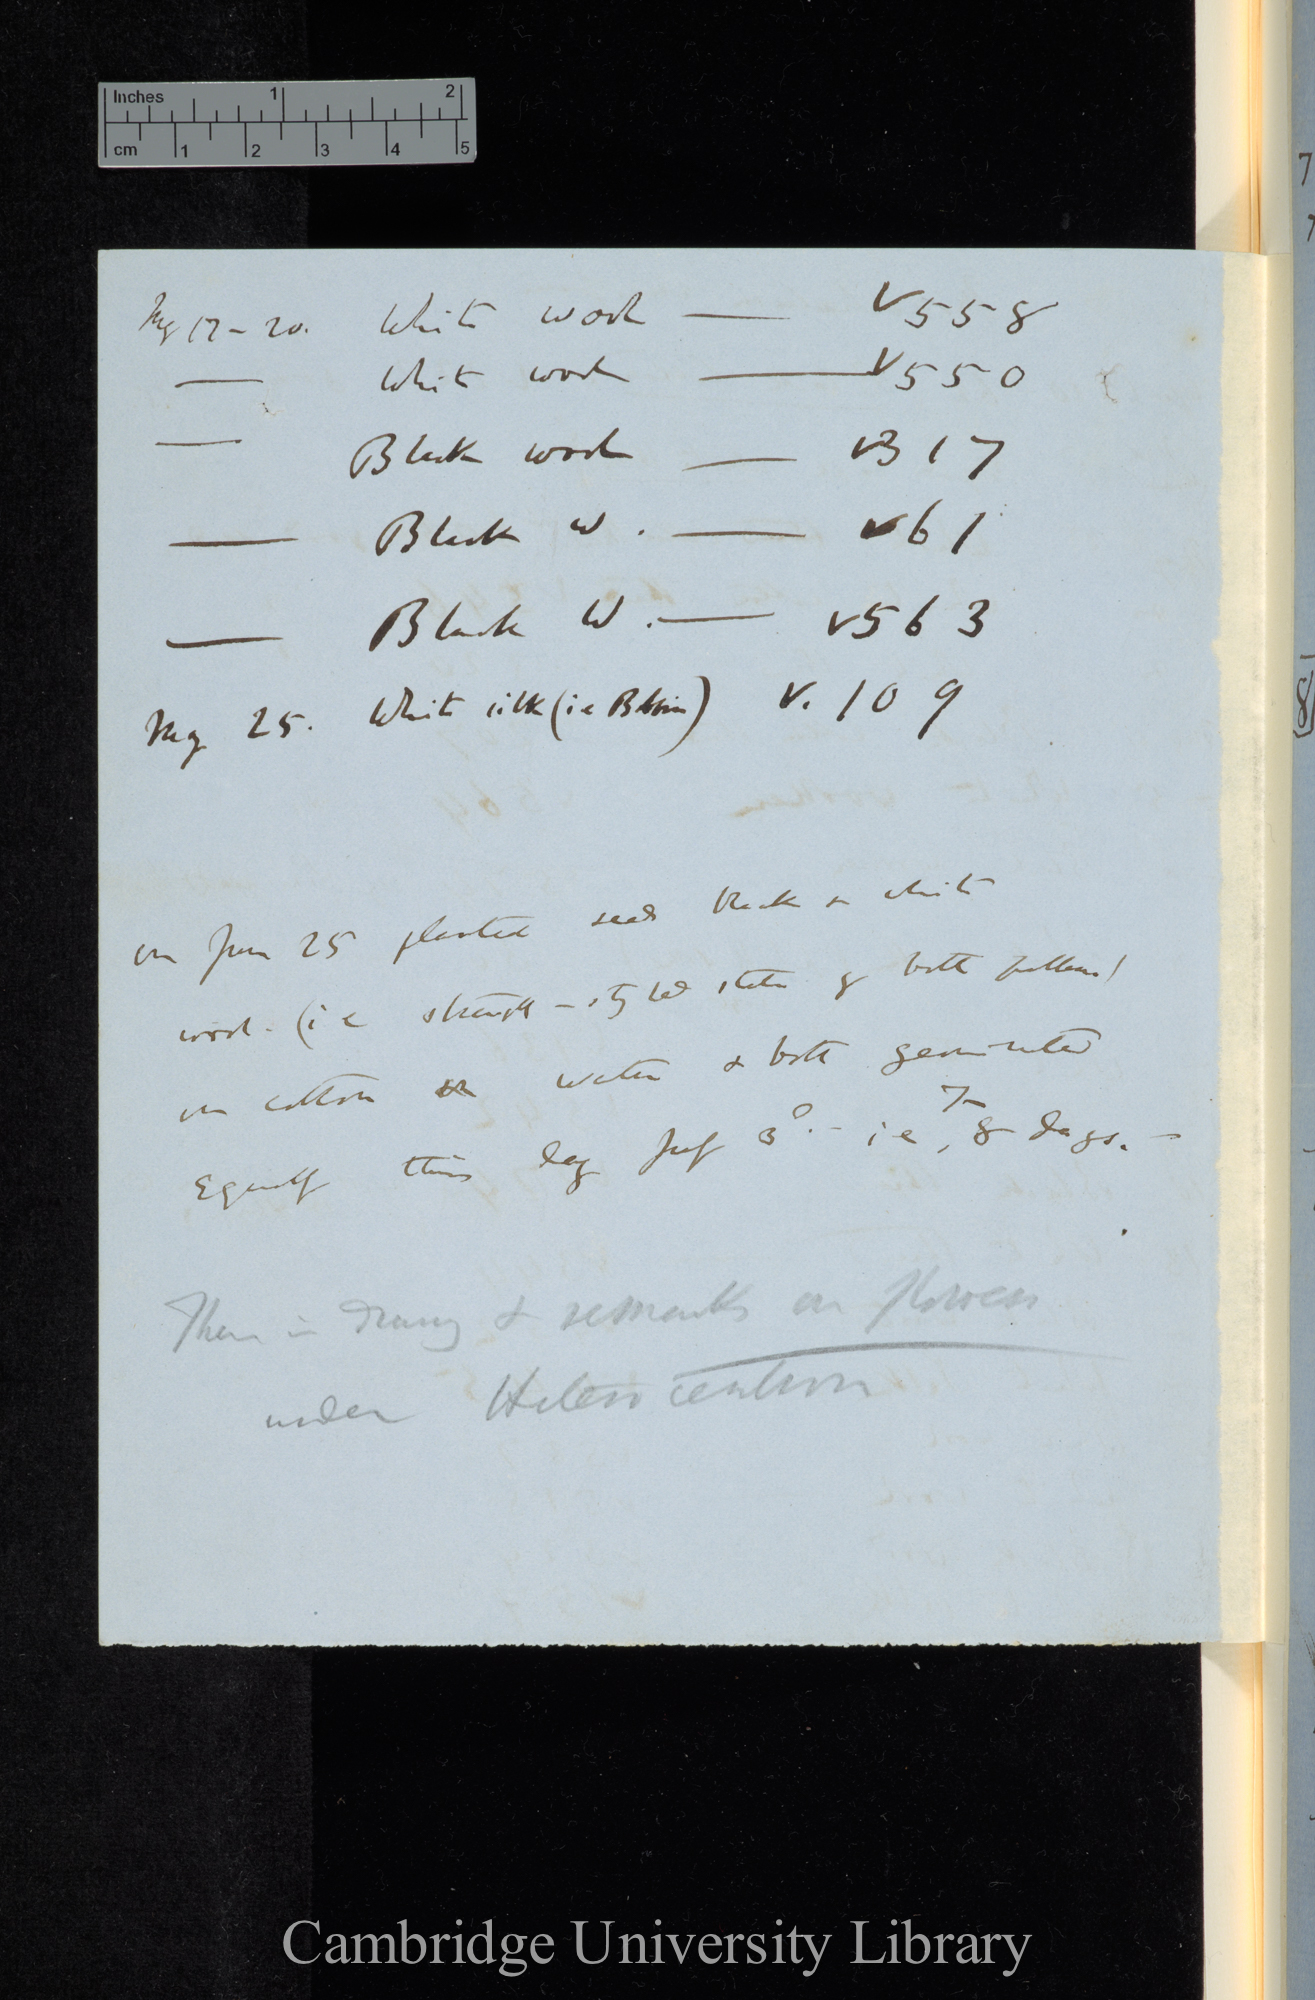 Inches 1 2
cm 1 2 3 4 5
May 17-20. White wool — V 558
— White wool — V 550
— Black wool — V 317
— Black W. — V 61
— Black W. — V 563
May 25. White silk (i.e. ) V. 109
on June 25 planted seeds black & white
wool. (i.e straight-styled state of both pollens)
on cotton on water & both germinated
Equally this day July 3°. — i.e 7 or 8 days. —
There is drawing & remarks on flowers
under Heterocentron
Cambridge University Library